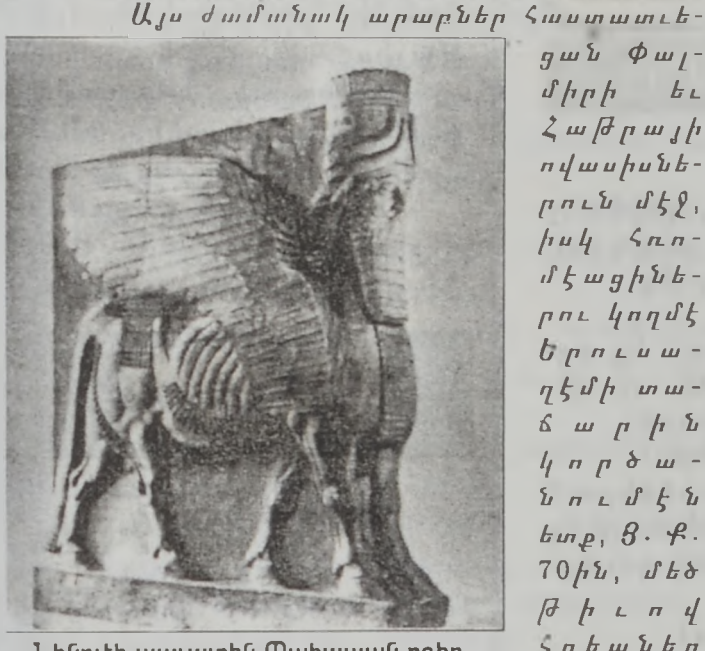 Այս ժամանակ արաբներ հաստատւե-
ցան Փալ-
միրի եւ
Հաթրայի
ովասիսնե-
րուն մէջ,
իսկ հռո-
մէացինե-
րու կողմէ
Երուսա-
ղէմի տա-
ճարին
կործա-
նումէն
ետք, Յ. Ք.
70ին, մեծ
թիւով
հրեաներ